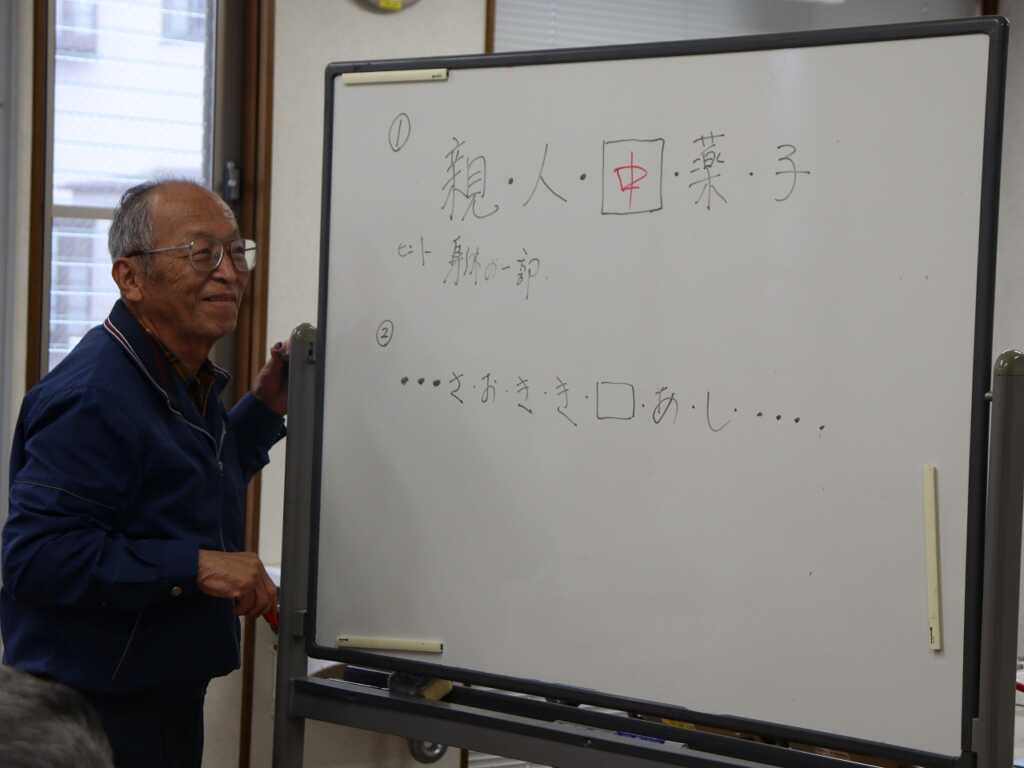 ①
親・人・中・薬・子
ヒント 身体の一部.
②
・・・さ・お・き・き・□・あ・し・・・・・